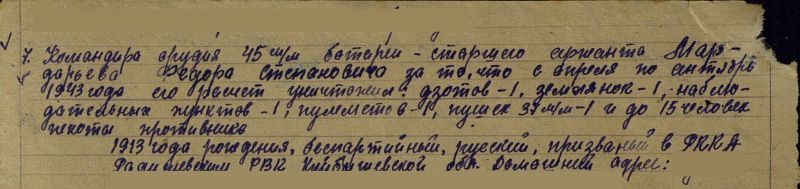 7. Командира орудия 45 м/м батареи - старшего сржанта Мар-
дарьева Федора Степановича за то, что с апреля по октябрь
1943 года его расчет уничтожил: дзотов-1, землянок-1, наблю-
дательных пунктов-1, пулеметов-1, пушек 37 м/м-1 и до 15 человек
пехоты противника
1913 года рождения, беспартийный, русский, призваный в РККА
РВК Куйбышевской обл. Домашний адрес: